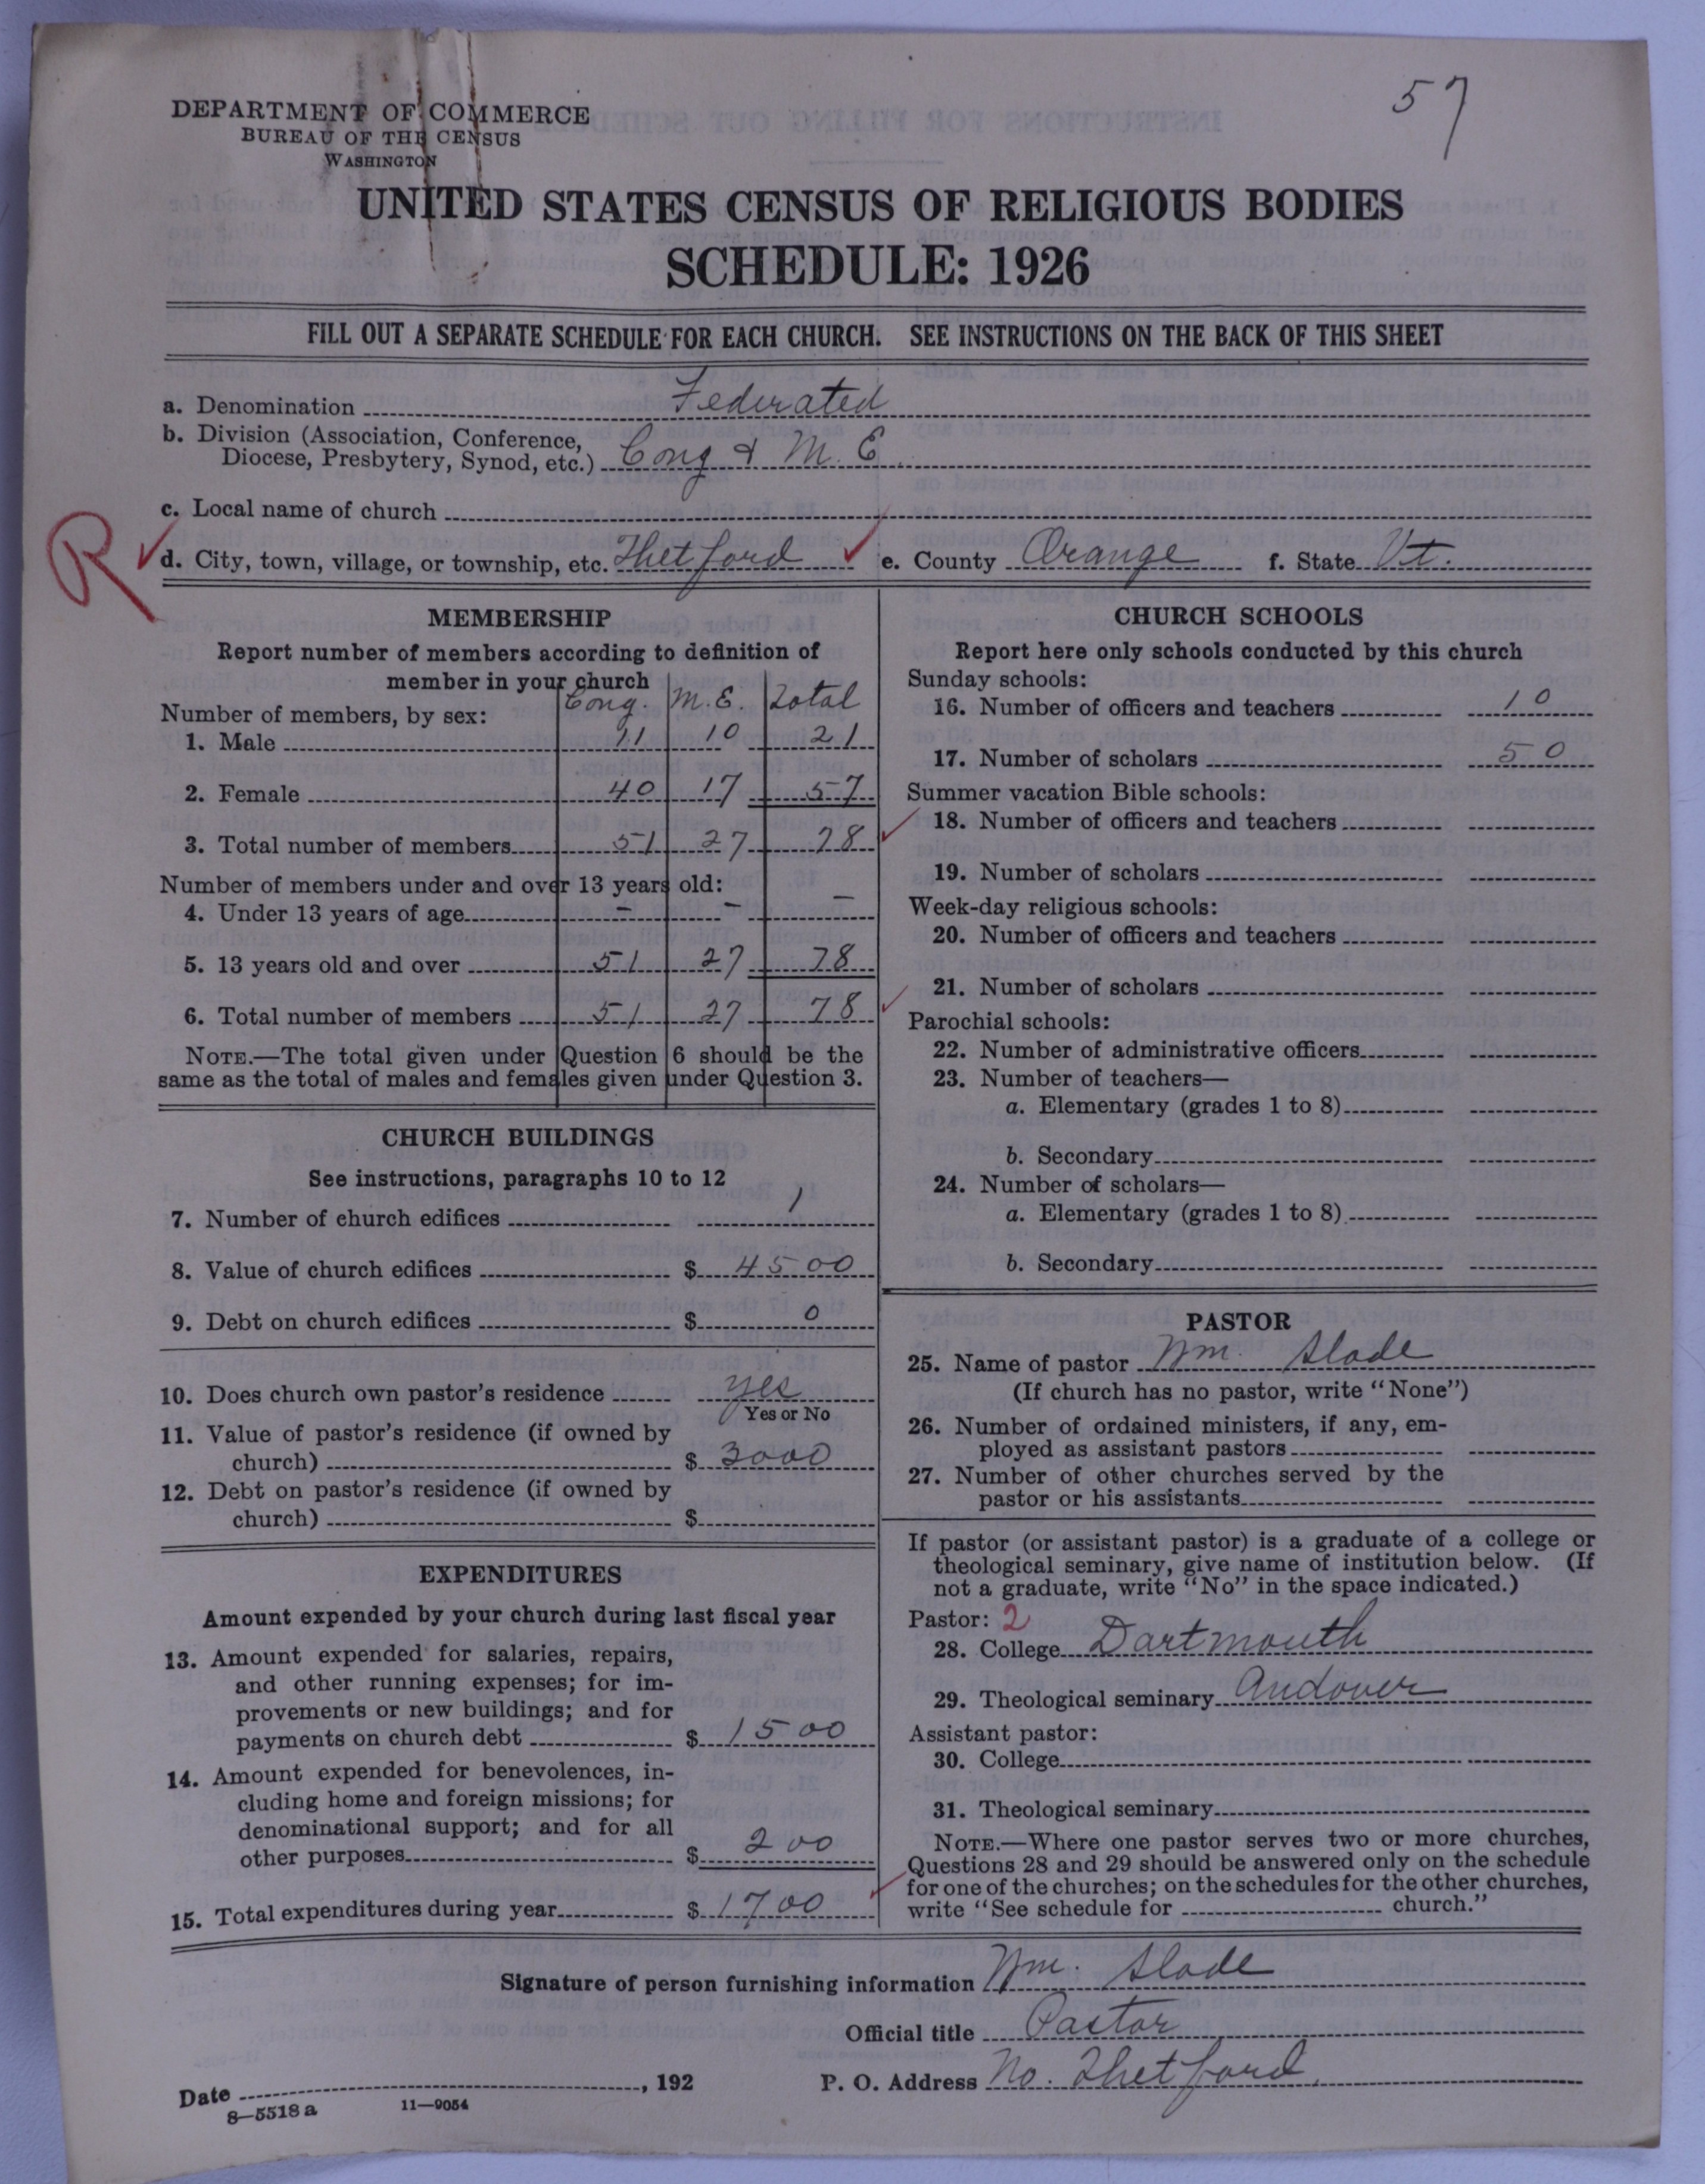 57
DEPARTMENT OF COMMERCE
BUREAU OF THE CENSUS
WASHINGTON
UNITED STATES CENSUS OF RELIGIOUS BODIES
SCHEDULE: 1926
FILL OUT A SEPARATE SCHEDULE FOR EACH CHURCH. SEE INSTRUCTIONS ON THE BACK OF THIS SHEET
a. Denomination Federated
b. Division (Association, Conference,
Diocese, Presbytery, Synod, etc.) Cong & M. E.
c. Local name of church
R
d. City, town, village, or township, etc. Thetford e. County Orange f. State Vt.
MEMBERSHIP
Report number of members according to definition of
member in your church
Cong. M.E. Total
Number of members, by sex:
1. Male 11 10 21
2. Female 40 17 57
3. Total number of members 51 27 78
Number of members under and over 13 years old:
4. Under 13 years of age – – –
5. 13 years old and over 51 27 78
6. Total number of members 51 27 78
NOTE.—The total given under Question 6 should be the
same as the total of males and females given under Question 3.
CHURCH BUILDINGS
See instructions, paragraphs 10 to 12
7. Number of church edifices 1
8. Value of church edifices $ 4500
9. Debt on church edifices $ 0
10. Does church own pastor's residence yes
Yes or No
11. Value of pastor's residence (if owned by
church) $ 3000
12. Debt on pastor's residence (if owned by
church) $
EXPENDITURES
Amount expended by your church during last fiscal year
13. Amount expended for salaries, repairs,
and other running expenses; for im-
provements or new buildings; and for
payments on church debt $ 1500
14. Amount expended for benevolences, in-
cluding home and foreign missions; for
denominational support; and for all
other purposes $ 200
15. Total expenditures during year $ 1700
CHURCH SCHOOLS
Report here only schools conducted by this church
Sunday schools:
16. Number of officers and teachers 10
17. Number of scholars 50
Summer vacation Bible schools:
18. Number of officers and teachers
19. Number of scholars
Week-day religious schools:
20. Number of officers and teachers
21. Number of scholars
Parochial schools:
22. Number of administrative officers
23. Number of teachers—
a. Elementary (grades 1 to 8)
b. Secondary
24. Number of scholars—
a. Elementary (grades 1 to 8)
b. Secondary
PASTOR
25. Name of pastor Wm. Slade
(If church has no pastor, write "None")
26. Number of ordained ministers, if any, em-
ployed as assistant pastors
27. Number of other churches served by the
pastor or his assistants
If pastor (or assistant pastor) is a graduate of a college or
theological seminary, give name of institution below. (If
not a graduate, write "No" in the space indicated.)
Pastor: 2
28. College Dartmouth
29. Theological seminary Andover
Assistant pastor:
30. College
31. Theological seminary
NOTE.—Where one pastor serves two or more churches,
Questions 28 and 29 should be answered only on the schedule
for one of the churches; on the schedules for the other churches,
write "See schedule for church."
Signature of person furnishing information Wm. Slade
Official title Pastor
Date , 192 P. O. Address No. Thetford.
8—5518a 11—9054